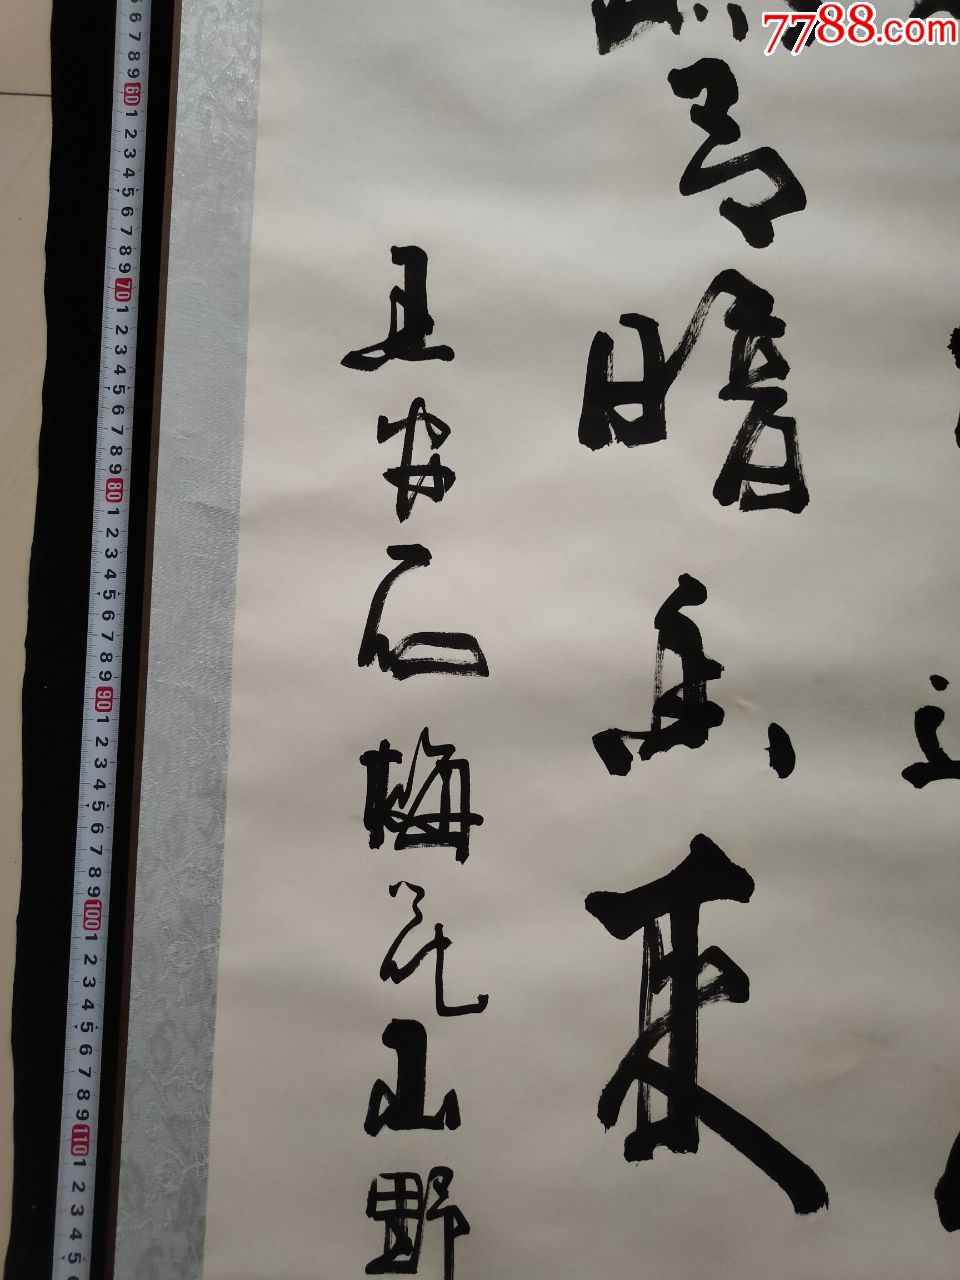 7788.com
有暗香来
王安石梅花山野
6 7 8 9 60 1 2 3 4 5 6 7 8 9 70 1 2 3 4 5 6 7 8 9 80 1 2 3 4 5 6 7 8 9 90 1 2 3 4 5 6 7 8 9 100 1 2 3 4 5 6 7 8 9 110 1 2 3 4 5